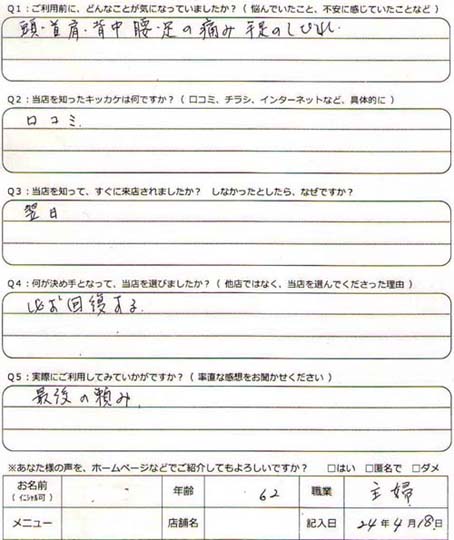 Q1：ご利用前に、どんなことが気になっていましたか？（ 悩んでいたこと、不安に感じていたことなど ）
頭・首肩・背中 腰・足の痛み 手足のしびれ.
Q2：当店を知ったキッカケは何ですか？（ 口コミ、チラシ、インターネットなど、具体的に ）
口コミ.
Q3：当店を知って、すぐに来店されましたか？ しなかったとしたら、なぜですか？
翌日
Q4：何が決め手となって、当店を選びましたか？（ 他店ではなく、当店を選んでくださった理由 ）
必ず回復する.
Q5：実際にご利用してみていかがですか？（ 率直な感想をお聞かせください ）
最後の頼み.
※あなた様の声を、ホームページなどでご紹介してもよろしいですか？ □はい □匿名で □ダメ
お名前（ｲﾆｼｬﾙ可） 年齢 62 職業 主婦
メニュー 店舗名 記入日 24年4月18日